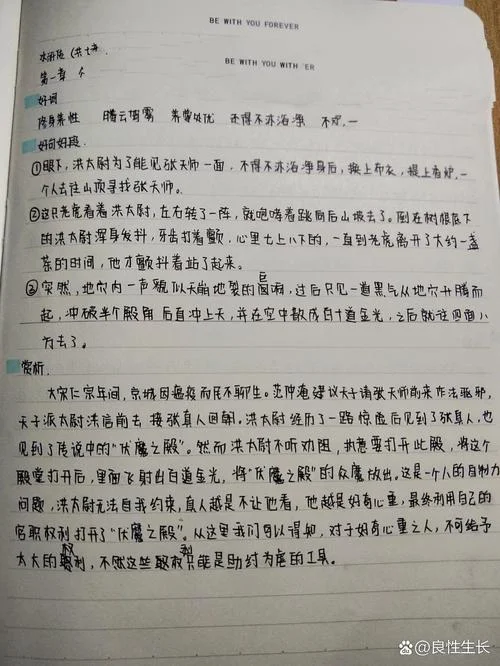 BE WITH YOU FOREVER
水浒传
BE WITH YOU WITH ER
第一章
好词
修身养性 腾云驾雾 养尊处优 还得不亦
好句好段
①眼下,洪太尉为了能见张天师一面,不得不亦浴净身后,换上布衣,提上香炉,一
个人去往山顶寻找张天师。
②这只老虎看着洪太尉,左右转了一阵,就咆哮着跳向后山坡去了。倒在树根底下
的洪太尉浑身发抖,牙齿打着颤,心里七上八下的,一直到老虎离开了大约一盏
茶的时间,他才颤抖着站了起来。
③突然,地穴内一声貌似天崩地裂的巨响,过后只见一道黑气从地穴升腾而
起,冲破半个殿角后直冲上天,并在空中散成百十道金光,之后就往四面八
方去了。
赏析
大宋仁宗年间,京城因瘟疫而民不聊生。范仲淹建议天子请张天师前来作法驱邪,
天子派太尉洪信前去接张真人回朝。洪太尉经历了一路惊险后见到了张真人,也
见到了传说中的“伏魔之殿”。然而洪太尉不听劝阻,执意要打开此殿,将这个
殿堂打开后,里面飞射出百道金光,将“伏魔之殿”的众魔放出。这是一个人的自制力
问题,洪太尉无法自我约束,真人越是不让他看,他越是好奇心重,最终利用自己的
官职权利打开了“伏魔之殿”。从这里我们可以得知,对于好奇心重之人,不可给予
太大的权利,不然这些权利只能是助纣为虐的工具。
@良性生长